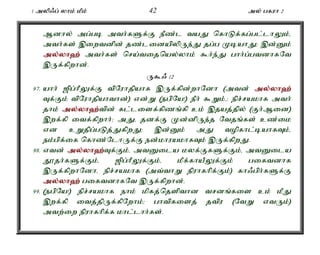 1 அலிஃப் லாம் மீம் 42 அல் பகரா 2
ஆனால் அப்படி அவர்களுக்கு நீண்ட வயது கொடுக்கப்பட்டாலும்,
அவர்கள் இறைவனின் தண்டனையிலிருந்து தப்ப முடியாது. இன்னும்
அல்லாஹ் அவர்கள் செய்வதையெல்லாம் கூர்ந்து பார்ப்பவனாகவே
இருக்கிறான்.
ருகூஃ 12
97. யார் ஜிப்ரீலுக்கு விரோதியாக இருக்கின்றானோ (அவன் அல்லாஹ்
வுக்கும் விரோதியாவான்) என்று (நபியே!) நீர் கூறும்; நிச்சயமாக அவர்
தாம் அல்லாஹ்வின் கட்டளைக்கிணங்கி உம் இதயத்தில் (குர்ஆனை)
இறக்கி வைக்கிறார்; அது, தனக்கு முன்னிருந்த வேதங்கள் உண்மை
என உறுதிப்படுத்துகிறது; இன்னும் அது வழிகாட்டியாகவும்,
நம்பிக்கை கொண்டோருக்கு நன்மாராயமாகவும் இருக்கிறது.
98. எவன் அல்லாஹ்வுக்கும், அவனுடைய மலக்குகளுக்கும், அவனுடைய
தூதர்களுக்கும், ஜிப்ரீலுக்கும், மீக்காயீலுக்கும் பகைவனாக
இருக்கிறானோ, நிச்சயமாக (அவ்வாறு நிராகரிக்கும்) காஃபிர்களுக்கு
அல்லாஹ் பகைவனாகவே இருக்கிறான்.
99. (நபியே!) நிச்சயமாக நாம் மிகத்தெளிவான வசனங்களை உம் மீது
இறக்கி வைத்திருக்கிறோம்; பாவிகளைத் தவிர (வேறு எவரும்)
அவற்றை நிராகரிக்க மாட்டார்கள்.